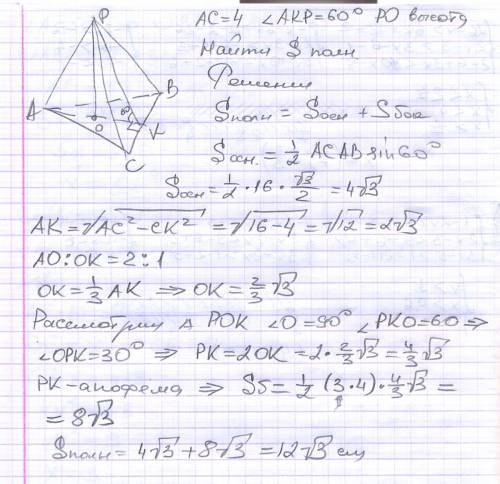 P
A
B
O
K
C
AC=4 ∠AKP=60° PO высота
Найти S полн
Решение
Sполн = Sосн + Sбок
Sосн. = 1/2 AC AB sin60°
Sосн = 1/2 · 16 · √3/2 = 4√3
AK = √(AC² - CK²) = √(16-4) = √12 = 2√3
AO:OK = 2:1
OK = 1/3 AK ⇒ OK = 2/3 √3
Рассмотрим Δ POK ∠O=90° ∠PKO=60 ⇒
∠OPK=30° ⇒ PK=2OK = 2·2/3√3 = 4/3√3
PK-апофема ⇒ Sб = 1/2 (3·4)·4/3√3 =
= 8√3
Sполн = 4√3 + 8√3 = 12√3 см